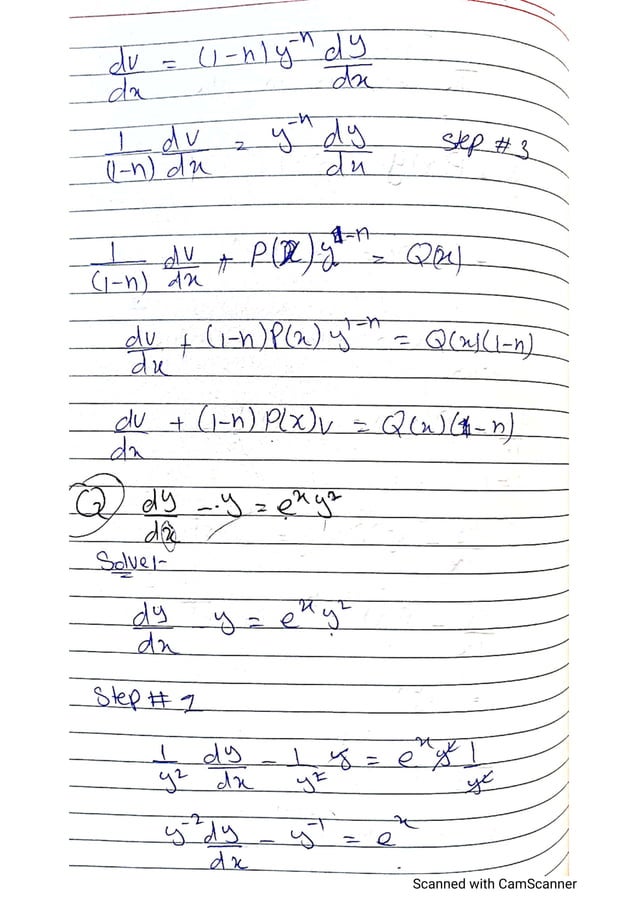 dv/dx = (1-n) y^-n dy/dx
1/(1-n) dv/dx = y^-n dy/dx Step # 3
1/(1-n) dv/dx + P(x) y^1-n = Q(x)
dv/dx + (1-n) P(x) y^1-n = Q(x)(1-n)
dv/dx + (1-n) P(x) v = Q(x)(1-n)
Q dy/dx - y = e^x y^2
Solve:-
dy/dx - y = e^x y^2
Step # 1
1/y^2 dy/dx - 1/y^2 y = e^x y^2 1/y^2
y^-2 dy/dx - y^-1 = e^x
Scanned with CamScanner